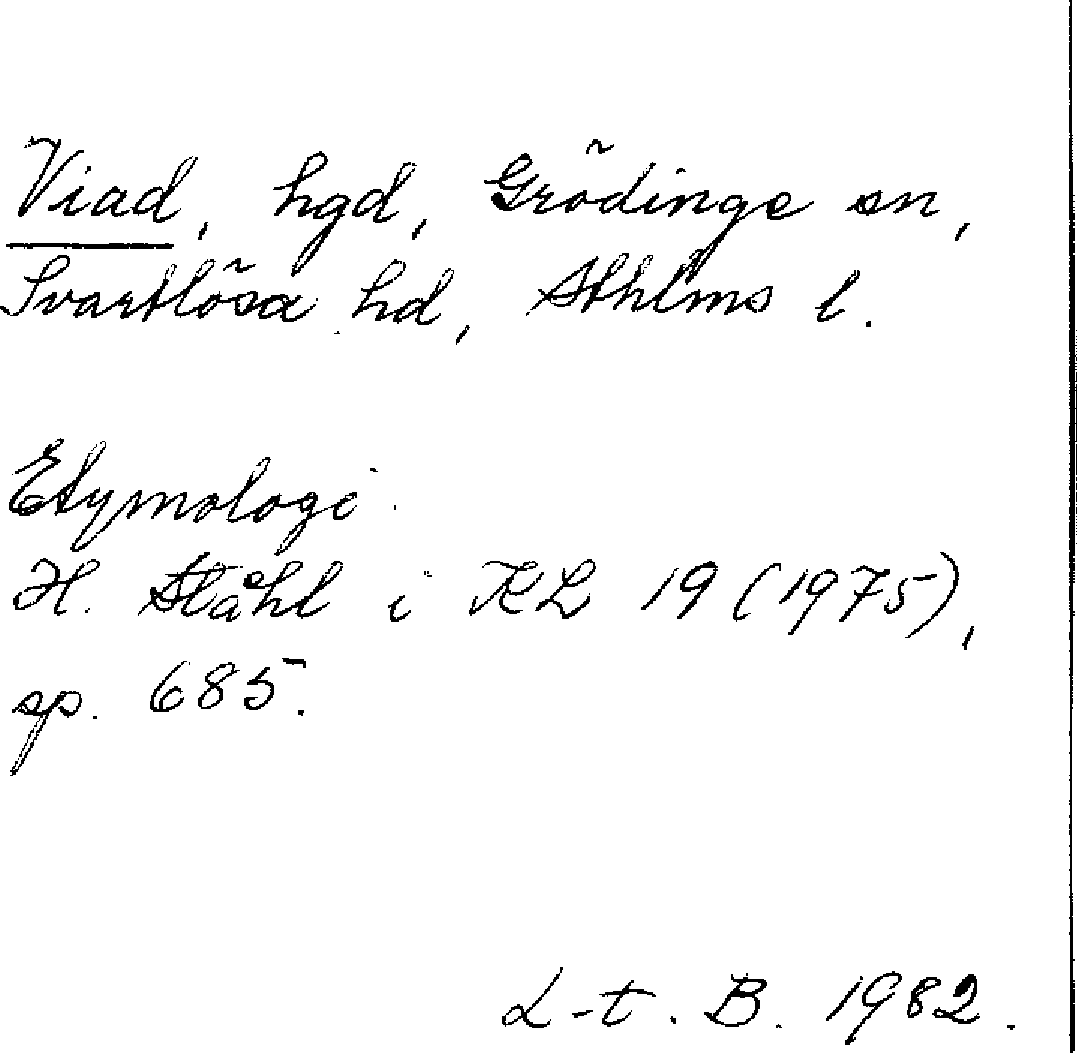 Viad, hgd, Grödinge sn,
Svartlösa hd, Sthlms l.
Etymologi.
H. Ståhl i KL 19 (1975),
sp. 685.
L-t. B. 1982.